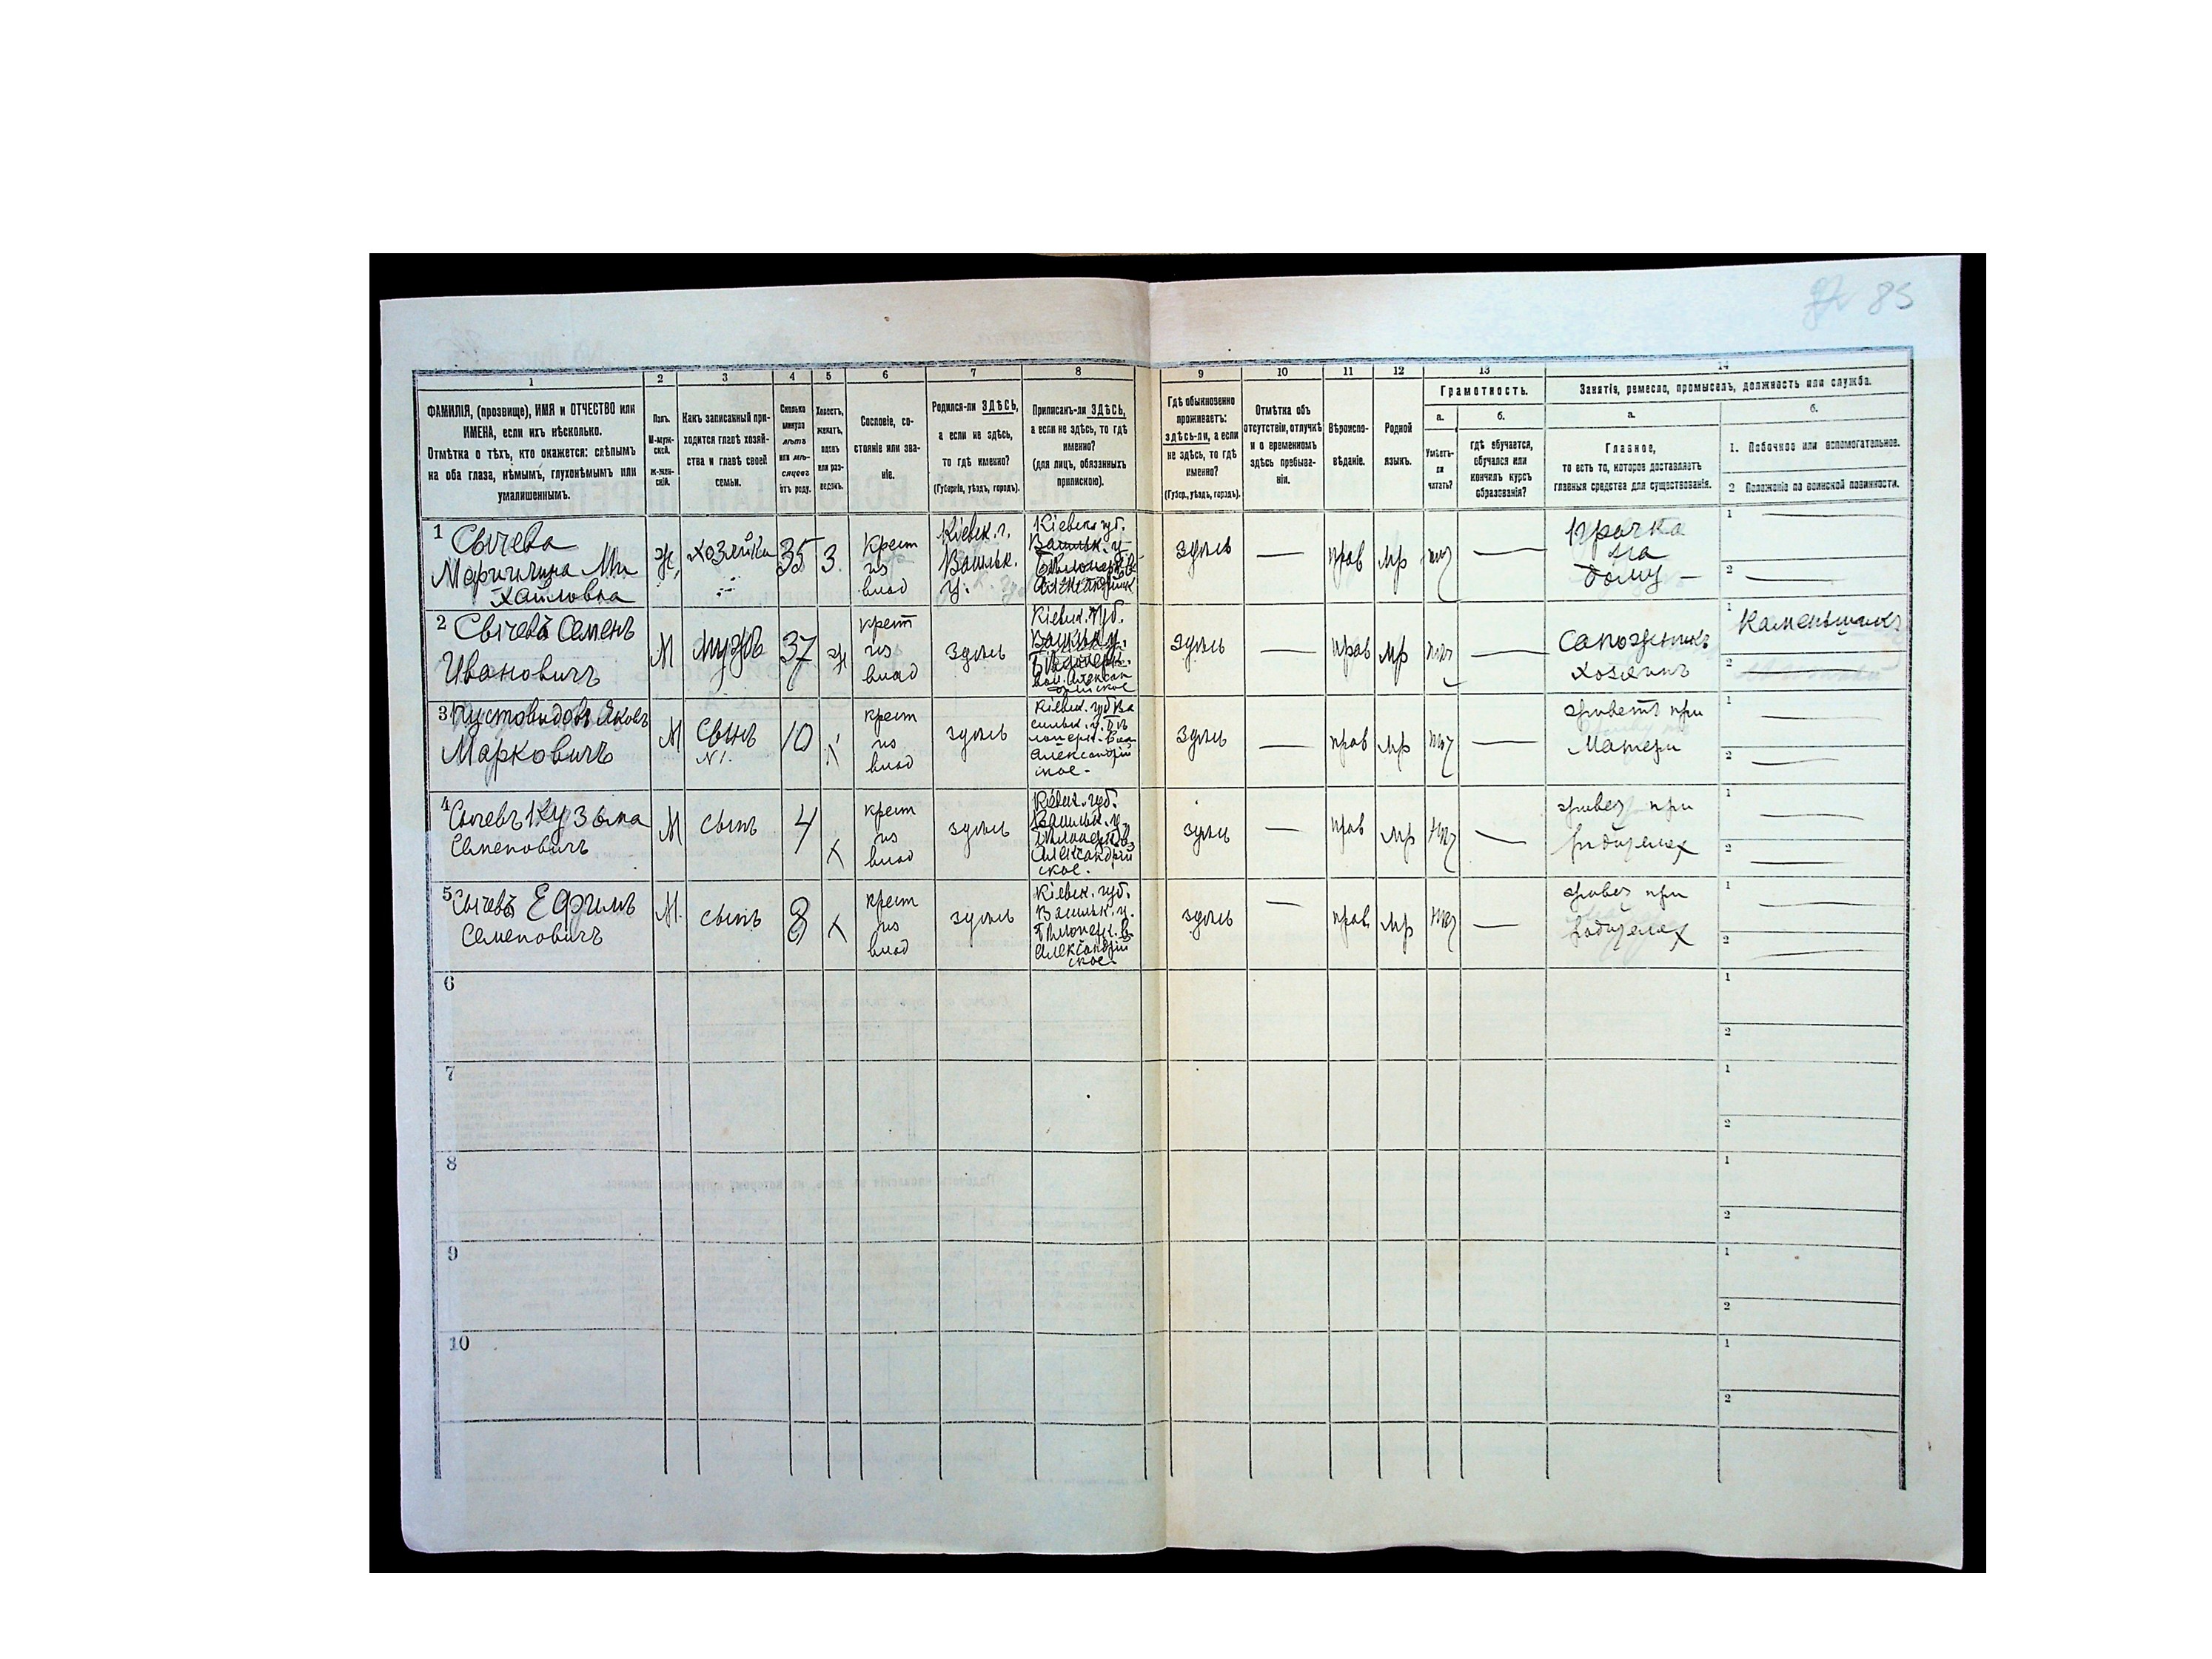 85
1
2
3
4
5
6
7
8
9
10
11
12
13
14
ФАМИЛІЯ, (прозвище), ИМЯ и ОТЧЕСТВО или
ИМЕНА, если ихъ нѣсколько.
Отмѣтка о тѣхъ, кто окажется: слѣпымъ
на оба глаза, нѣмымъ, глухонѣмымъ или
умалишеннымъ.
Полъ.
М-муж-
ской.
ж-жен-
скій.
Какъ записанный при-
ходится главѣ хозяй-
ства и главѣ своей
семьи.
Сколько
минуло
лѣтъ
или мѣ-
сяцевъ
отъ роду.
Холостъ,
женатъ,
вдовъ
или раз-
веденъ.
Сословіе, со-
стояніе или зва-
ніе.
Родился-ли ЗДѢСЬ,
а если не здѣсь,
то гдѣ именно?
(Губернія, уѣздъ, городъ).
Приписанъ-ли ЗДѢСЬ,
а если не здѣсь, то гдѣ
именно?
(для лицъ, обязанныхъ
припискою).
Гдѣ обыкновенно
проживаетъ:
здѣсь-ли, а если
не здѣсь, то гдѣ
именно?
(Губер., уѣздъ, городъ).
Отмѣтка объ
отсутствіи, отлучкѣ
и о временномъ
здѣсь пребыва-
ніи.
Вѣроиспо-
вѣданіе.
Родной
языкъ.
Грамотность.
а.
Умѣетъ-
ли
читать?
б.
гдѣ обучается,
обучался или
кончилъ курсъ
образованія?
Занятія, ремесло, промыселъ, должность или служба.
а.
Главное,
то есть то, которое доставляетъ
главныя средства для существованія.
б.
1. Побочное или вспомогательное.
2 Положеніе по воинской повинности.
1 Свічева
Ми
хайловна
ж, хозяйка 35 З. крест
из
влад
Кіевск. г.
Васильк.
у.
Кіевск. губ.
Васильк. у.
здѣсь — прав мр — Прачка
на
дому —
1 —
2 —
2 Свічевъ Семенъ
Ивановичъ
М мужъ 37 ж крест
из
влад
здѣсь
Кіевск. губ.
здѣсь — прав мр — Сапожникъ
хозяинъ
1 Каменьщикъ
2 —
3 Пустовидовъ Яковъ
Марковичъ
М Сынъ
N 1.
10 х крест
из
влад
здѣсь
Кіевск. губ Ва
сильк. у.
Александрій
ское.
здѣсь — прав мр — живетъ при
Матери
1 —
2 —
4 Сычевъ Кузьма
Семеновичъ
М сынъ 4 х крест
из
влад
здѣсь
Кіевск. губ.
Васильк. у.
Александрій
ское.
здѣсь — прав мр — живет при
родителех
1 —
2 —
5 Сычевъ Ефимъ
Семеновичъ
М. сынъ 8 х крест
из
влад
здѣсь
Кіевск. губ.
Васильк. у.
Александрій
ское.
здѣсь — прав мр — живет при
родителех
1 —
2 —
6
1
2
7
1
2
8
1
2
9
1
2
10
1
2